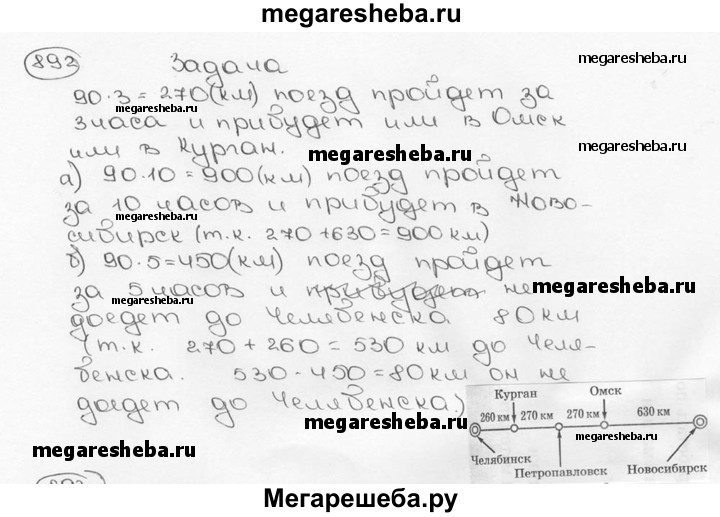 megaresheba.ru
892 Задача
megaresheba.ru
90·3=270(км) поезд пройдет за
megaresheba.ru
3 часа и прибудет или в Омск
или в Курган.
megaresheba.ru
а) 90·10=900(км) поезд пройдет
за 10 часов и прибудет в Ново-
megaresheba.ru
megaresheba.ru
сибирск (т.к. 270+630=900 км)
б) 90·5=450(км) поезд пройдет
за 5 часов и прибудет не
megaresheba.ru
megaresheba.ru
доедет до Челябенска 80 км
(т.к. 270+260=530 км до Челя-
бенска. 530-450=80 км он не
доедет до Челябенска.)
Курган Омск
260 км 270 км 270 км 630 км
megaresheba.ru
megaresheba.ru
Челябинск
Петропавловск
Новосибирск
megaresheba.ru
Мегарешеба.ру